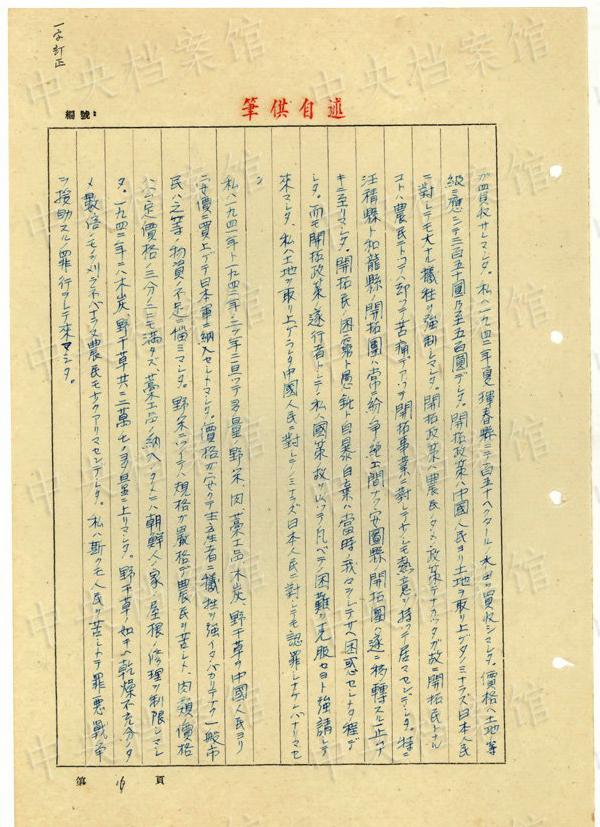 一字訂正
編號:
述自供筆
ガ買収サレマシタ。私ハ一九四二年夏琿春縣ニテ百五十ヘクタールノ水田ヲ買収シマシタ。價格ハ土地等
級ニ應シテ三百五十圓乃至五百圓デシタ。開拓政策ハ中國人民ヨリ土地ヲ取リ上ゲタノミナラズ日本人民
ニ對シテモ大ナル犠牲ヲ強制シマシタ。開拓政策ハ農民ノタメノ政策デナカッタガ故ニ開拓民トナル
コトハ農民ニトッテハ却ツテ苦痛デアリ開拓事業ニ對シテ少シモ熱意ヲ持ッテ居マセンデシタ。特ニ
汪精縣ト和龍縣ノ開拓團ハ常ニ紛争ノ絶エ間ナク安圖縣ノ開拓團ハ遂ニ移轉スルノ止ムナ
キニ至リマシタ。開拓民ノ困窮ト愚鈍ト自暴自棄ハ當時ノ我々ヲシテサヘ困惑セシメタ程デ
シタ。而モ開拓政策ノ遂行者トシテノ私ハ國策故ヲ以ッテ凡ベテノ困難ヲ克服セヨト強請シテ
來マシタ。私ハ土地ヲ取リ上ゲラレタ中國人民ニ對シテノミナラズ日本人民ニ對シテモ認罪シナケレバナリマセ
ン
私ハ一九四一年ト一九四二年ノ二ケ年ニ亘ッテ多量ノ野菜、肉、藁工品、木炭、野干草ヲ中國人民ヨリ
安價ニ買上ゲテ日本軍ニ納入セシメマシタ。價格ガ安クテ生産者ニ犠牲ヲ強イタバカリデナク一般市
民ハ之等ノ物資ノ不足ニ惱ミマシタ。野菜ニツイテハ規格ガ嚴格デ農民ヲ苦シメ、肉類ノ價格
ハ公定價格ノ三分ノ二ニモ満タズ、藁工品ノ納入ノタメニハ朝鮮人ノ家ノ屋根ノ修理ヲ制限シマシ
タ。一九四二年ニハ木炭、野干草共ニ二萬屯ノ多量ニ上リマシタ。野干草ノ如キハ乾燥不充分ノタ
メ數倍ノモノヲ刈ラネバナラヌ農民モ少クアリマセンデシタ。私ハ斯クモ人民ヲ苦シメテ罪悪戰争
ヲ援助スルノ罪行ヲシテ來マシタ。
第 16 頁